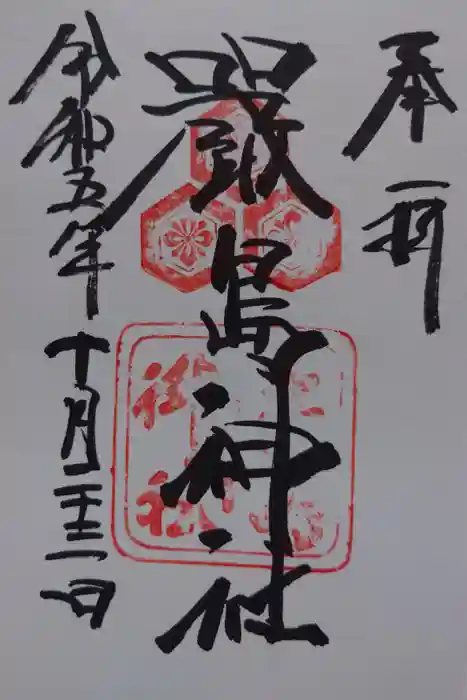 奉拝
嚴島神社
令和五年十月二十三日